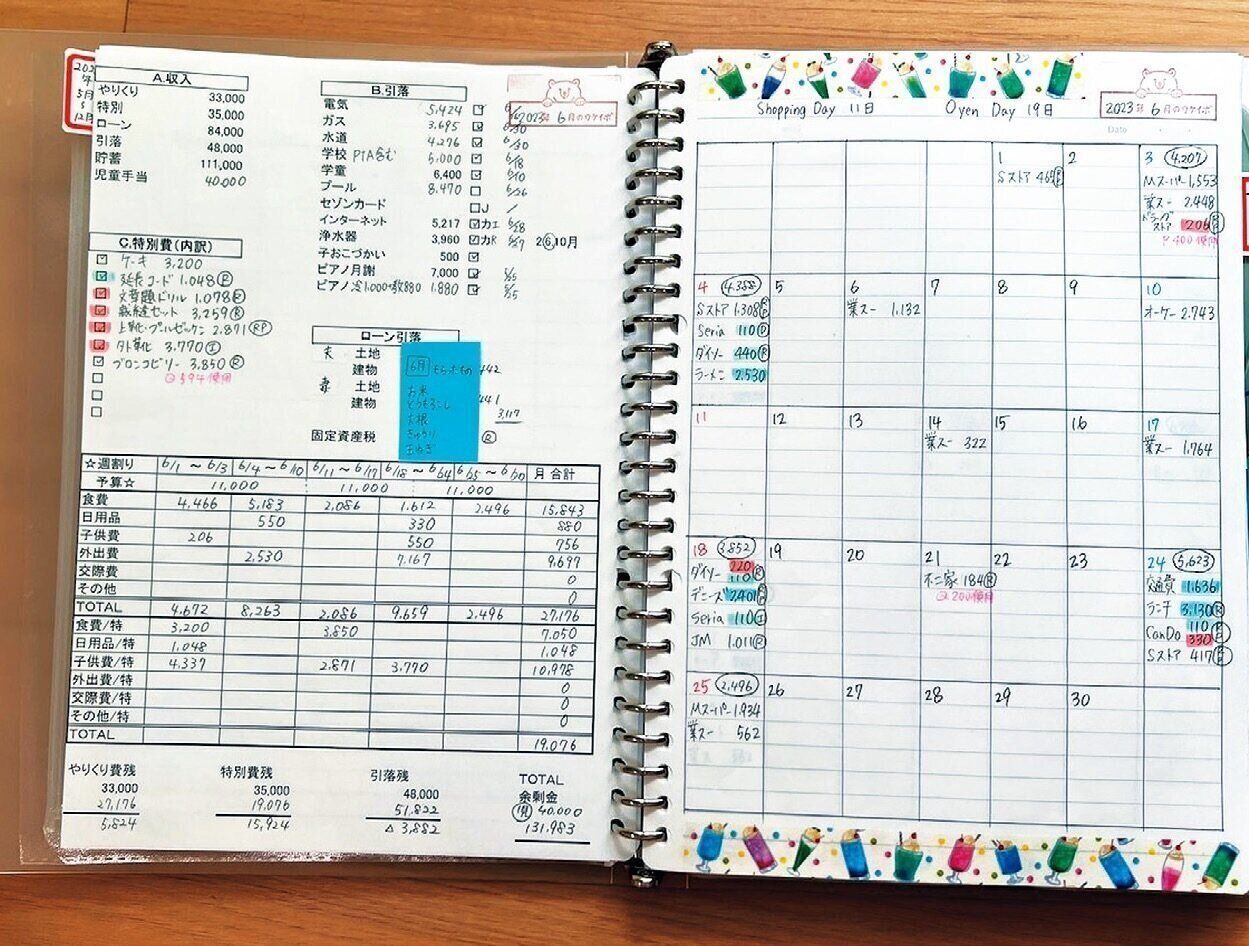 A.収入
やりくり 33,000
特別 35,000
ローン 84,000
引落 48,000
貯蓄 111,000
児童手当 40,000
B.引落
2023年 6月のワケイボ
電気 5,424
ガス 3,695 6/30
水道 4,276 6/30
学校 PTA含む 5,000 6/18
学童 6,400 6/10
プール 8,470 6/26
セゾンカード J /
インターネット 5,217 カエ 6/28
浄水器 3,960 カR 2 6,10月
子おこづかい 500
ピアノ月謝 7,000 5/5
ピアノ 1,000+教880 1,880 5/5
C.特別費(内訳)
ケーキ 3,200
延長コード 1,048 R
文章題ドリル 1,078 R
裁縫セット 3,259 R
上靴・プルゼッケン 2,871 RP
外靴 3,770 I
ブロンコビリー 3,850 R
594使用
ローン引落
夫 土地
建物 442
妻 土地
建物 441
3,117
固定資産税 R
6月
お米
とうもろこし
大根
きゅうり
☆週割り 6/1 ~ 6/3 6/4 ~ 6/10 6/11 ~ 6/17 6/18 ~ 6/24 6/25 ~ 6/30 月合計
予算☆ 11,000 11,000 11,000
食費 4,466 5,183 2,086 1,612 2,496 15,843
日用品 550 330 880
子供費 206 550 756
外出費 2,530 7,167 9,697
交際費 0
その他 0
TOTAL 4,672 8,263 2,086 9,659 2,496 27,176
食費/特 3,200 3,850 7,050
日用品/特 1,048 1,048
子供費/特 4,337 2,871 3,770 10,978
外出費/特 0
交際費/特 0
その他/特 0
TOTAL 19,076
やりくり費残
33,000
27,176
5,824
特別費残
35,000
19,076
15,924
引落残
48,000
51,822
△ 3,882
TOTAL
余剰金
児 40,000
131,983
Shopping Day 11日 Oyen Day 19日
2023年 6月のワケイボ
Date
1
Sストア 469
2
3 4,207
Mスーパー 1,553
業スー 2,448
ドラッグストア 206
P400使用
4 4,388
Sストア 1,308
Seria 110
ダイソー 440
ラーメン 2,530
5
6
業スー 1,132
7
8
9
10
オーケー 2,743
11
12
13
14
業スー 322
15
16
17
業スー 1,764
18 3,852
ダイソー 220
110 R
デニーズ 2,401
Seria 110 I
JM 1,011 R
19
20
21
不二家 184 R
200使用
22
23
24 5,623
交通費 1,636
ランチ 3,130 R
CanDo 110
330
Sストア 417
25 2,496
Mスーパー 1,934
業スー 562
26
27
28
29
30